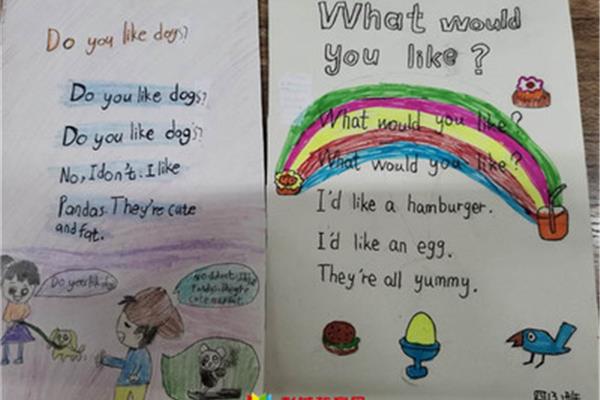 Do you like dogs?
Do you like dogs?
Do you like dogs?
No, I don't. I like
Pandas. They're cute
and fat.
Do you like
What would
you like?
What would you like?
What would you like?
I'd like a hamburger.
I'd like an egg.
They're all yummy.